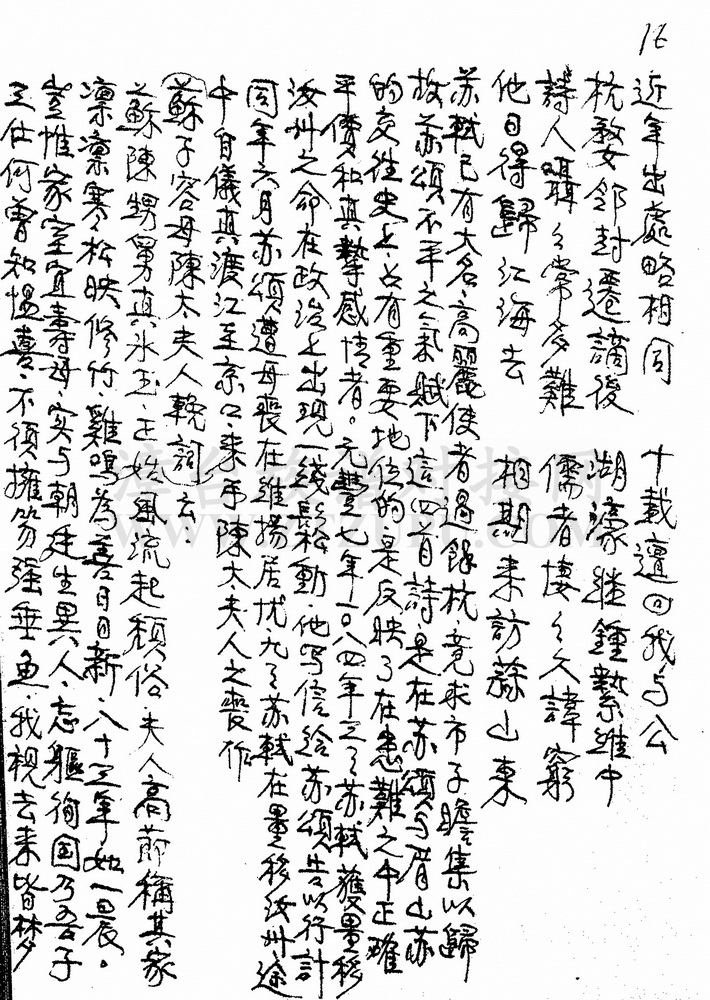 16
近年出處略相同　十載邅回我与公
杭婺鄰封遷謫後　湖濠继踵縶維中
詩人聑々常多難　儒者悽々久諱窮
他日得歸江海去　相期来訪蒜山東
苏軾已有大名，高麗使者過餘杭，竟求市子瞻集以歸
故苏頌不平之氣賦下這四首詩，是在苏頌与眉山苏
的交往史上，占有重要地位的，是反映了在患難之中正確
平價和真摯感情者。元豐七年一〇八四年之々苏軾獲量移
汝州之命在政治上出現一线鬆動，他写信给苏頌告以行計
同年六月苏頌遭母喪在維揚居忧，九々苏軾在量移汝州途
中自儀真渡江至京口，来弔陳大夫人之喪作
蘇子容母陳太夫人輓詞云：
苏陳甥舅真冰玉，正始風流起頹俗，夫人高節稱其家
凛凛寒松映修竹，雞鳴為善日日新，八十三年如一晨。
豈惟家室宜壽母，实与朝廷生異人，忘軀徇国乃吾子
三仕何曾知愠喜，不須擁笏强垂魚，我視去来皆梦